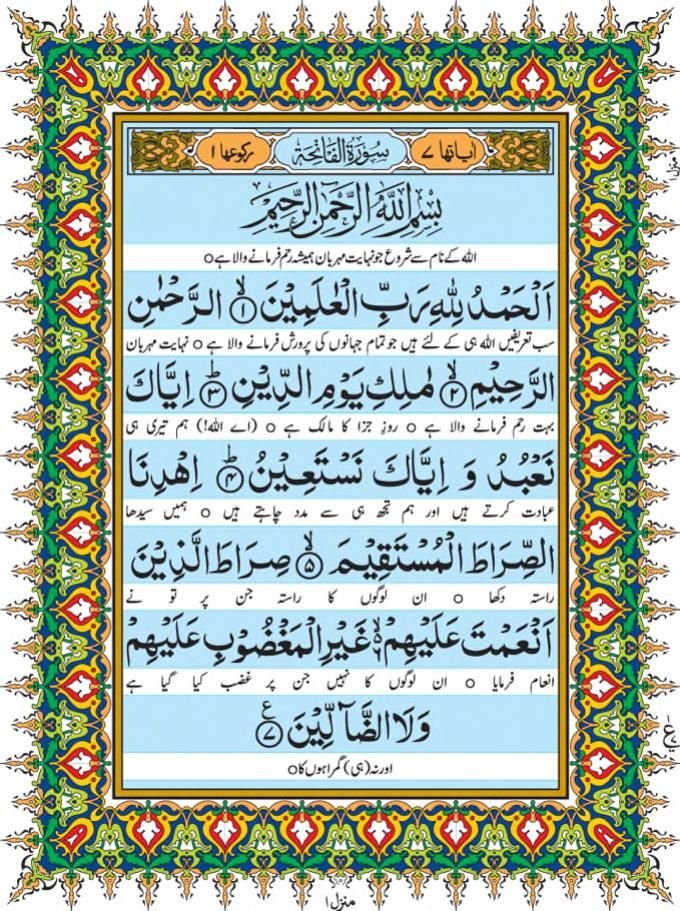 اٰیاتھا ۷ سُوۡرَۃُ الۡفَاتِحَۃِ رکوعھا ۱
بِسۡمِ اللّٰہِ الرَّحۡمٰنِ الرَّحِیۡمِ
اللہ کے نام سے شروع جو نہایت مہربان ہمیشہ رحم فرمانے والا ہے ○
اَلۡحَمۡدُ لِلّٰہِ رَبِّ الۡعٰلَمِیۡنَ ۙ﴿۱﴾ الرَّحۡمٰنِ
سب تعریفیں اللہ ہی کے لئے ہیں جو تمام جہانوں کی پرورش فرمانے والا ہے ○ نہایت مہربان
الرَّحِیۡمِ ۙ﴿۲﴾ مٰلِکِ یَوۡمِ الدِّیۡنِ ؕ﴿۳﴾ اِیَّاکَ
بہت رحم فرمانے والا ہے ○ روزِ جزا کا مالک ہے ○ (اے اللہ!) ہم تیری ہی
نَعۡبُدُ وَ اِیَّاکَ نَسۡتَعِیۡنُ ؕ﴿۴﴾ اِہۡدِنَا
عبادت کرتے ہیں اور ہم تجھ ہی سے مدد چاہتے ہیں ○ ہمیں سیدھا
الصِّرَاطَ الۡمُسۡتَقِیۡمَ ۙ﴿۵﴾ صِرَاطَ الَّذِیۡنَ
راستہ دکھا ○ ان لوگوں کا راستہ جن پر تو نے
اَنۡعَمۡتَ عَلَیۡہِمۡ ۙ﴿۶﴾ غَیۡرِ الۡمَغۡضُوۡبِ عَلَیۡہِمۡ
انعام فرمایا ○ ان لوگوں کا نہیں جن پر غضب کیا گیا ہے
وَلَا الضَّآلِّیۡنَ ﴿۷﴾ ع
اور نہ (ہی) گمراہوں کا ○
منزل ۱
منزل ۱